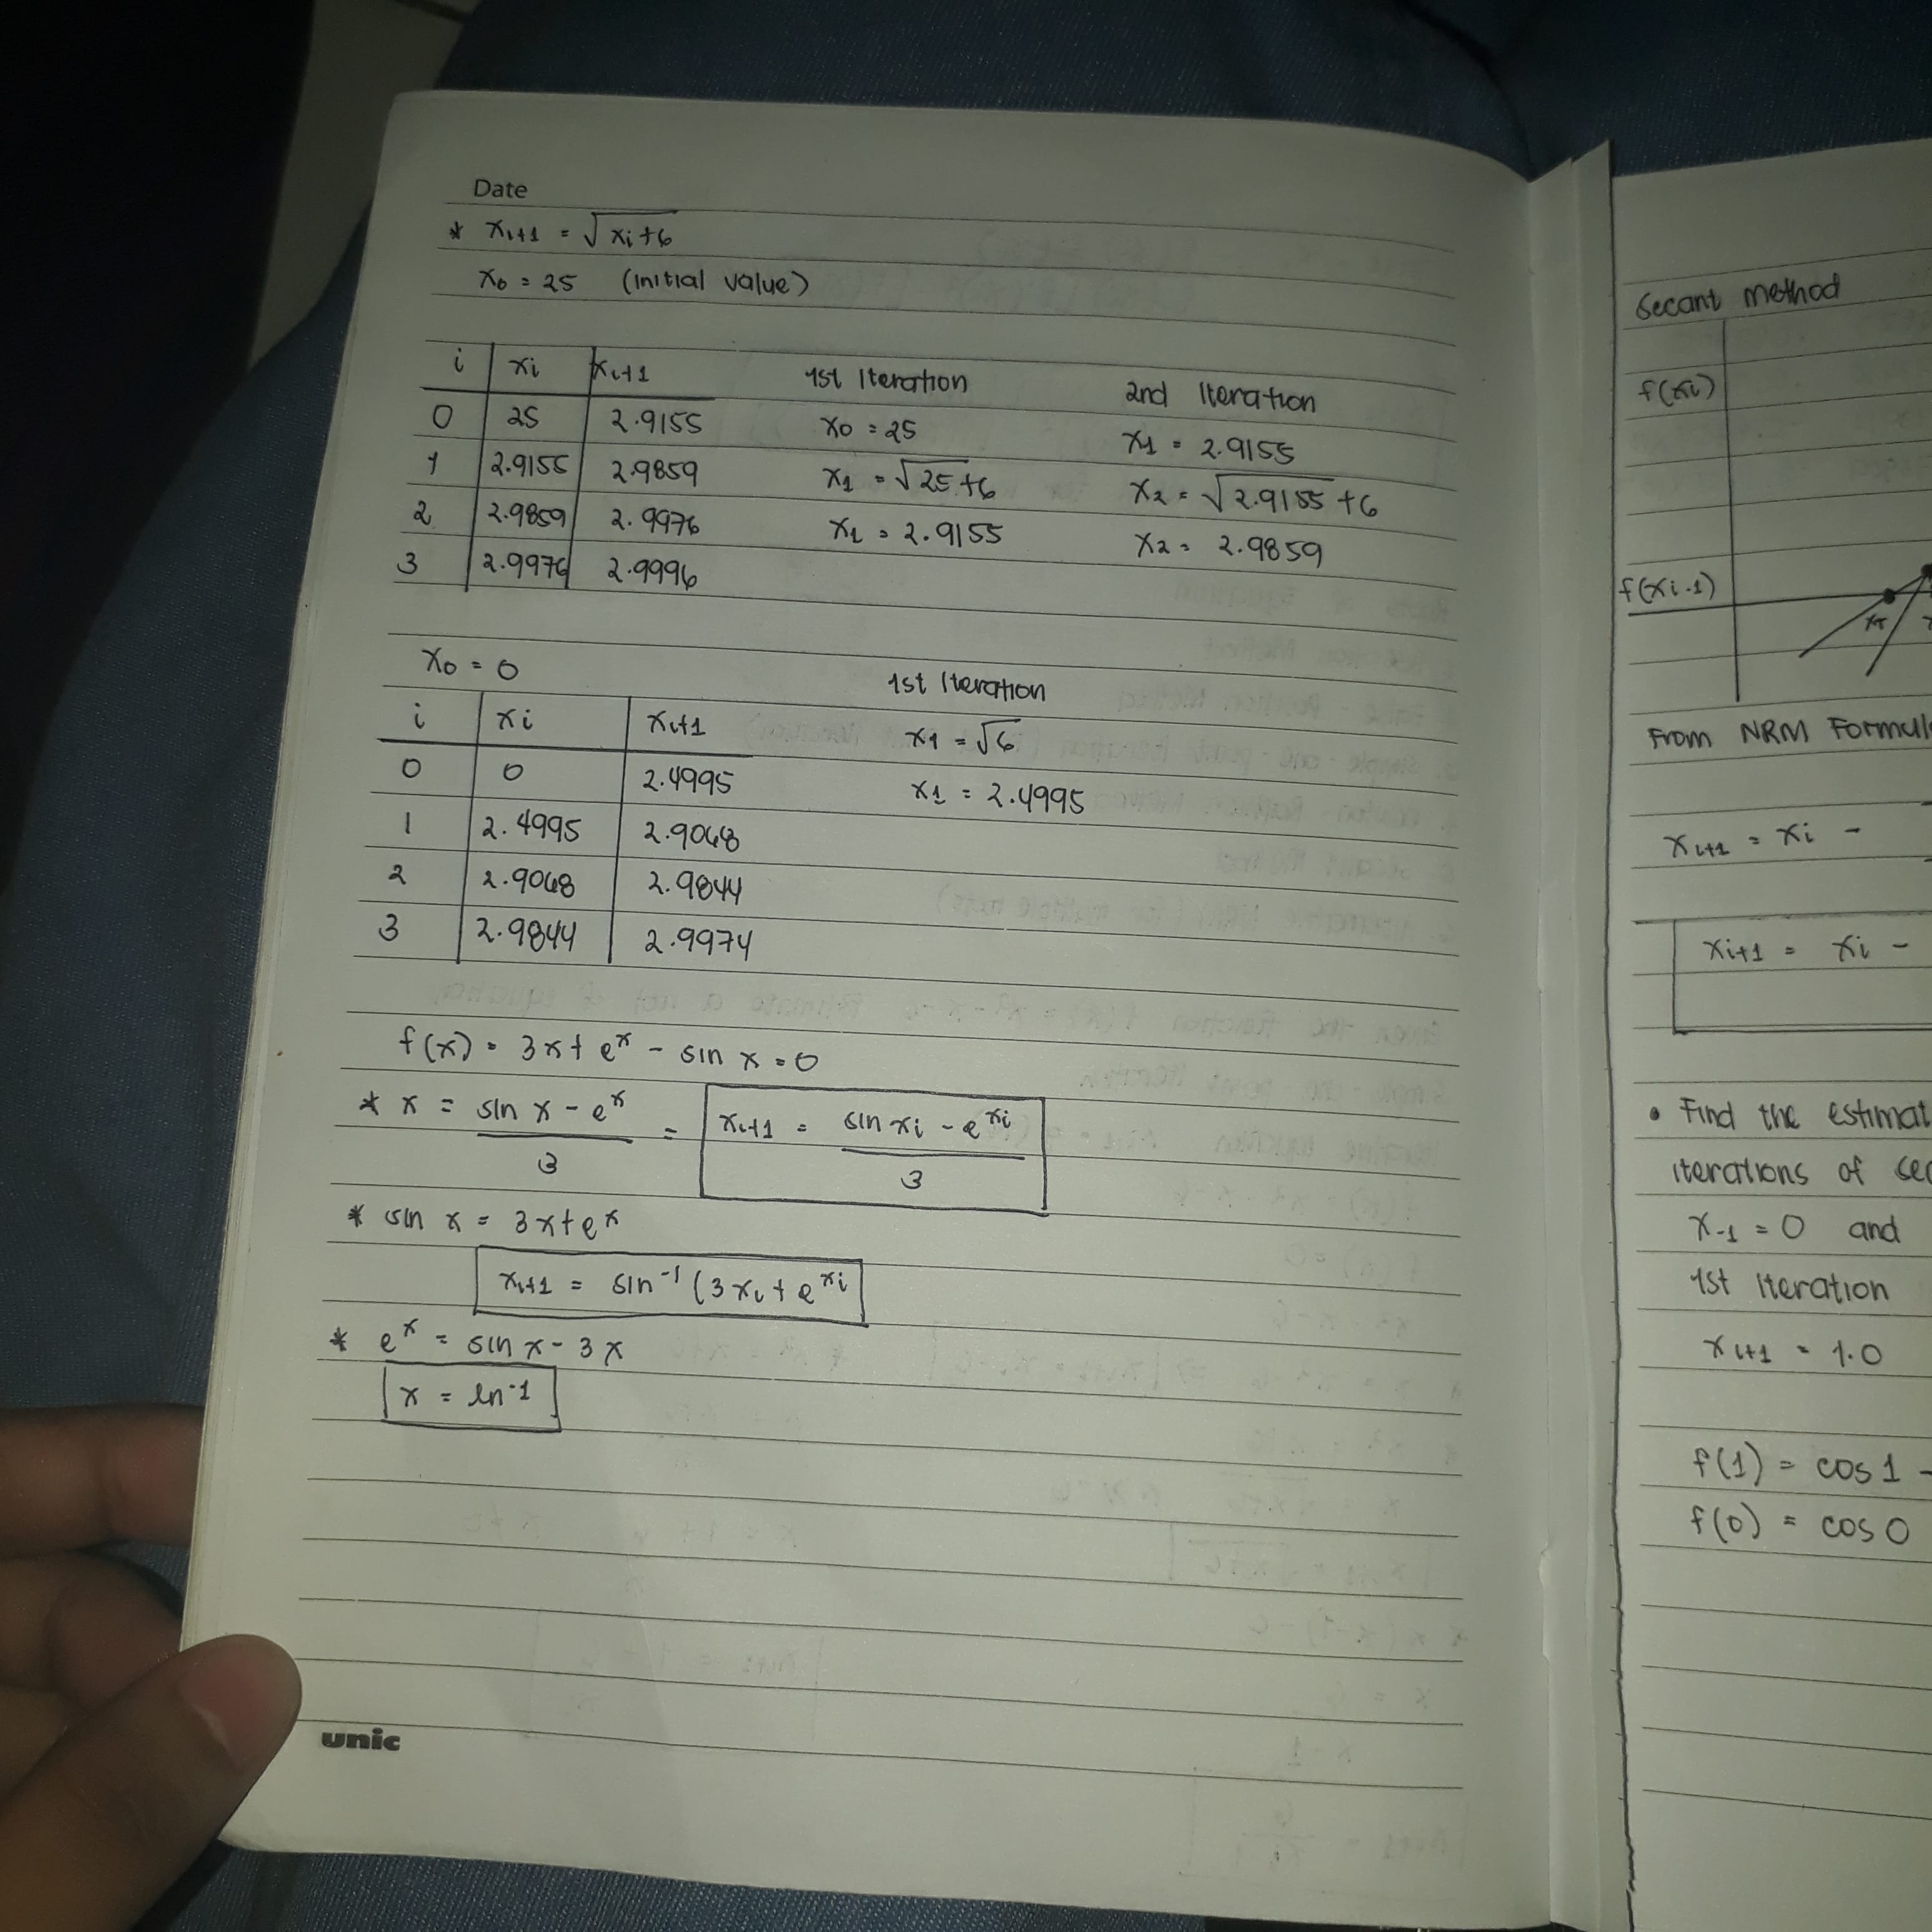 Date
* xi+1 = √xi+6
x0 = 25 (Initial value)
i xi xi+1
0 25 2.9155
1 2.9155 2.9859
2 2.9859 2.9976
3 2.9976 2.9996
1st Iteration
x0 = 25
x1 = √25+6
x1 = 2.9155
2nd Iteration
x1 = 2.9155
x2 = √2.9155+6
x2 = 2.9859
x0 = 0
i xi xi+1
0 0 2.4995
1 2.4995 2.9068
2 2.9068 2.9844
3 2.9844 2.9974
1st Iteration
x1 = √6
x1 = 2.4995
f(x) = 3x + e^x - sin x = 0
* x = (sin x - e^x)/3 = xi+1 = (sin xi - e^xi)/3
* sin x = 3x + e^x
xi+1 = sin^-1 (3xi + e^xi
* e^x = sin x - 3x
x = ln^-1
unic
Secant method
f(xi)
f(xi-1)
From NRM
xi+1 = xi -
xi+1 = xi -
• Find the
iterations of
x-1 = 0 and
1st Iteration
xi+1 = 1.0
f(1) = cos 1 -
f(0) = cos 0